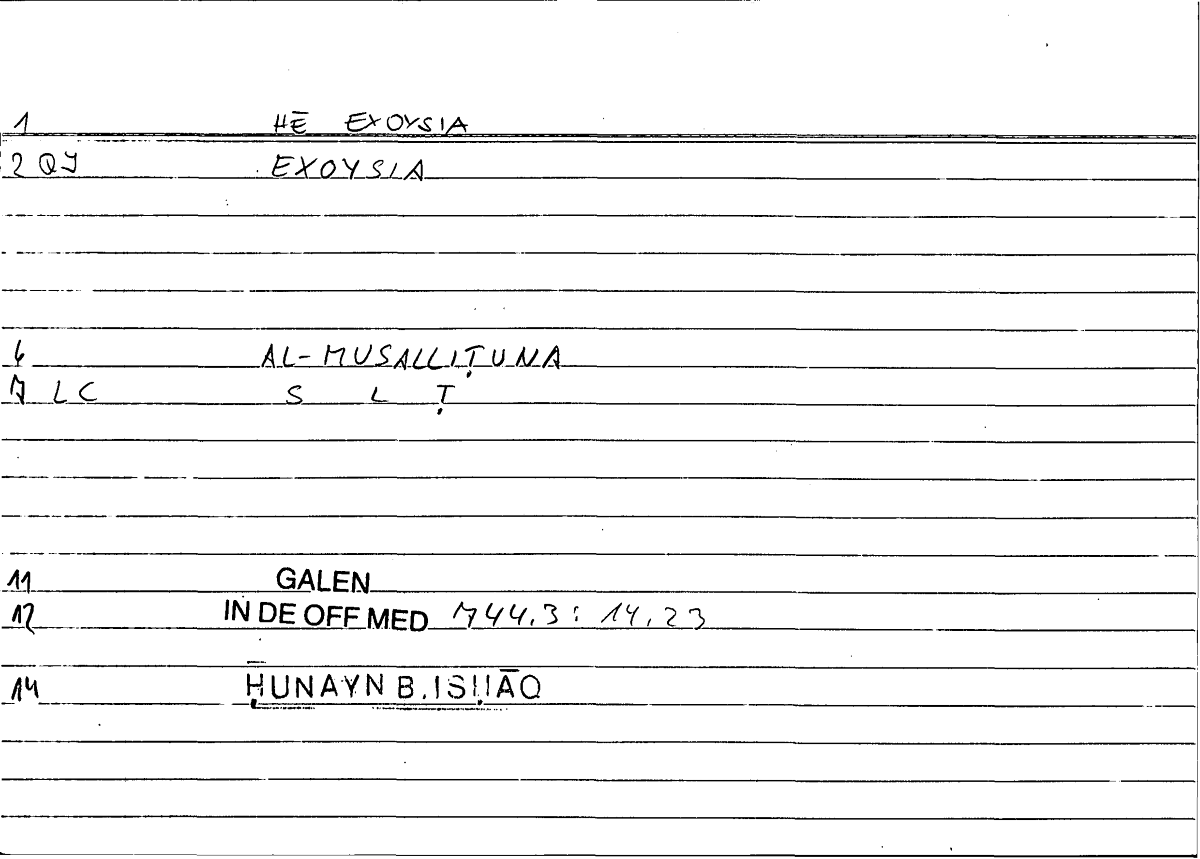 1 HĒ EXOYSIA
2 QJ EXOYSIA
6 AL-MUSALLIṬUNA
7 LC S L Ṭ
11 GALEN
12 IN DE OFF MED 744.3: 14.23
14 ḤUNAYN B. ISḤĀQ